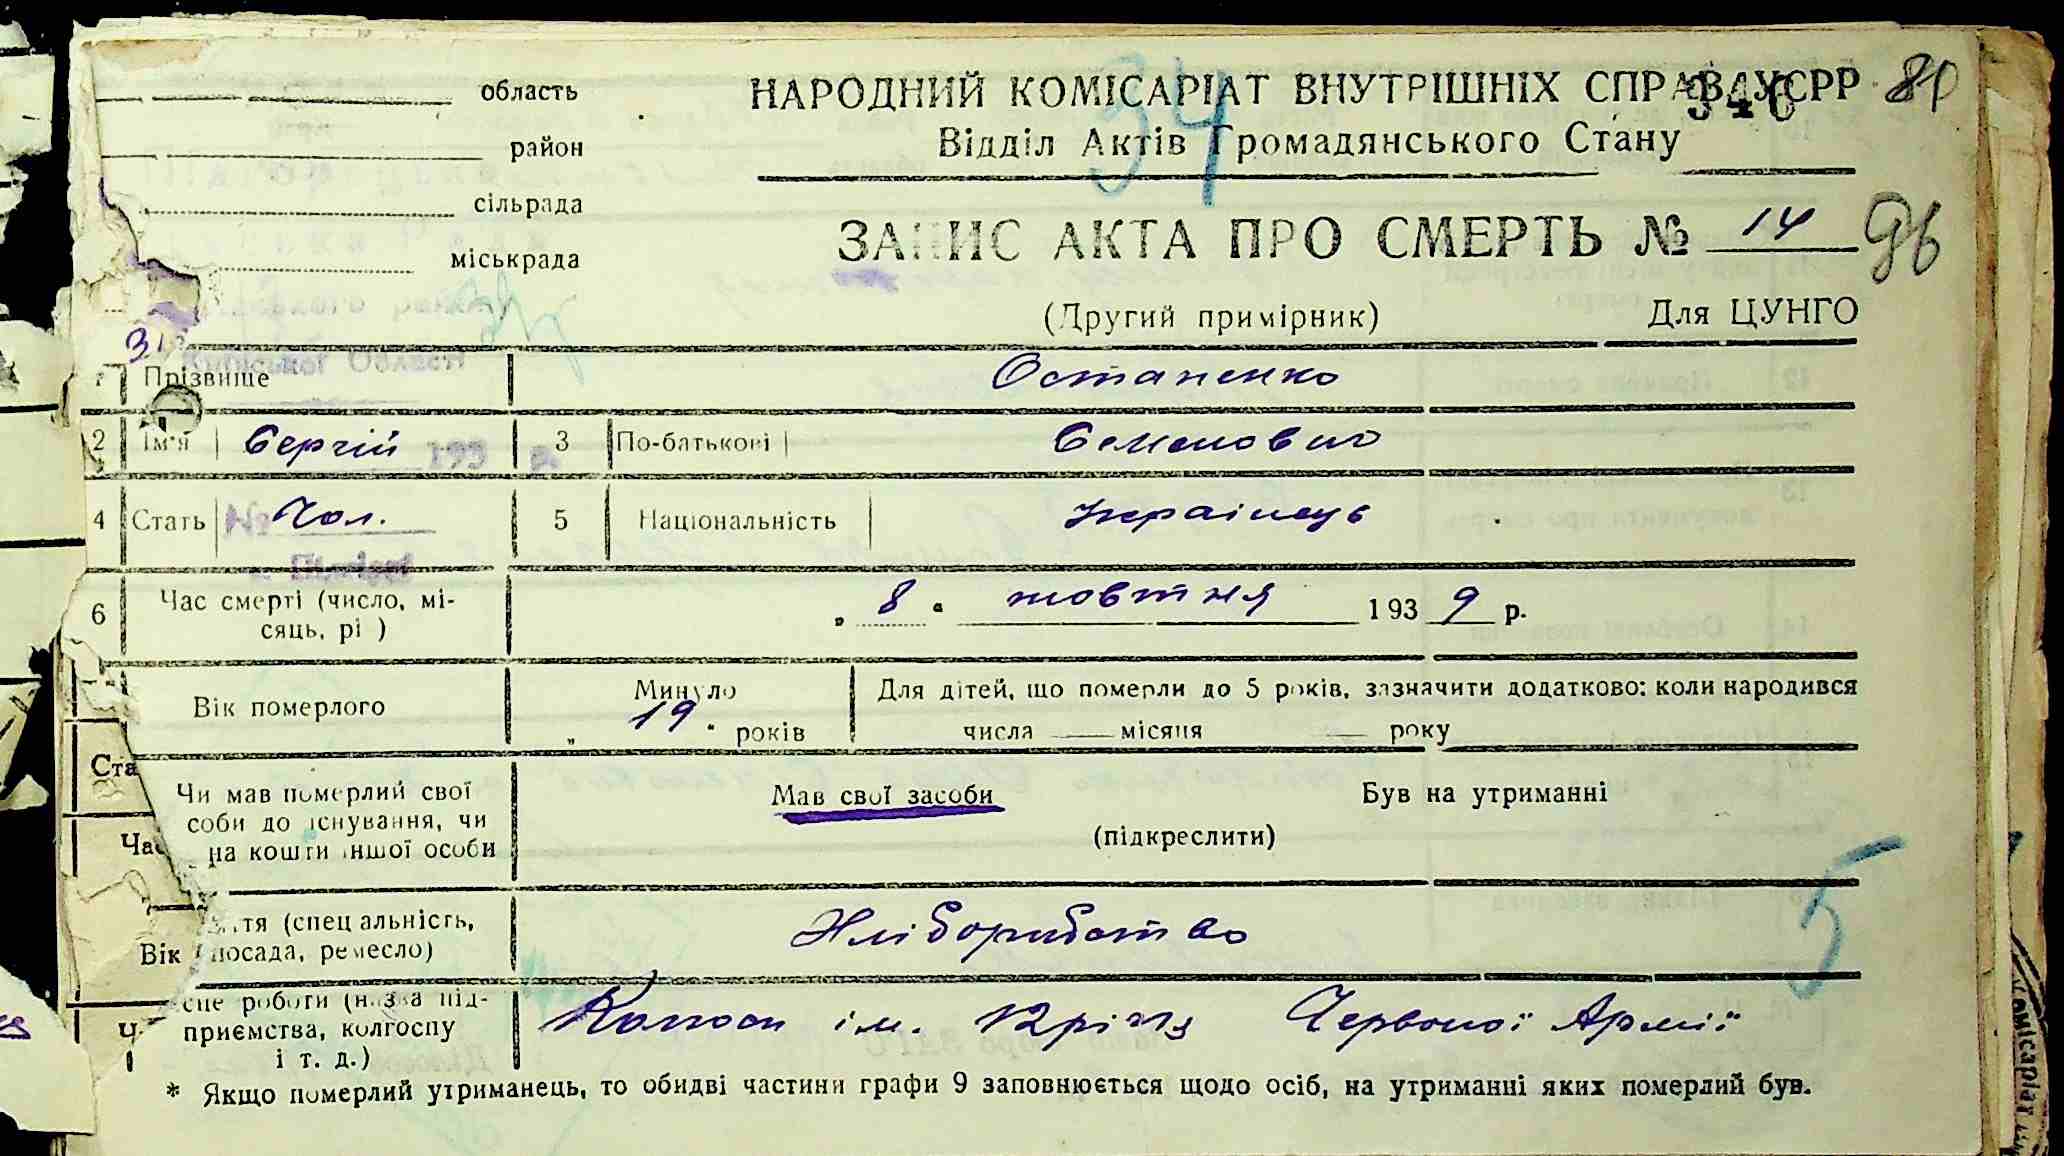 область
НАРОДНИЙ КОМІСАРІАТ ВНУТРІШНІХ СПРАВ УСРР 81
346
34
район
Відділ Актів Громадянського Стану
сільрада
ЗАПИС АКТА ПРО СМЕРТЬ № 14
96
міськрада
(Другий примірник) Для ЦУНГО
Київської Області
1 Прізвище Остапенко
2 Ім'я Сергій 3 По-батькові Семенович
193 р.
4 Стать Чол. 5 Національність Українець
№
6 Час смерті (число, мі-
сяць, рі ) „ 8 “ жовтня 193 9 р.
Вік померлого Минуло „ 19 “ років
Для дітей, що померли до 5 років, зазначити додатково: коли народився
числа — місяця — року
Ста
Чи мав померлий свої
соби до існування, чи
на кошти іншої особи
Мав свої засоби Був на утриманні
(підкреслити)
Час
5
ття (спеціальність,
посада, ремесло) Хліборобство
Вік
сце роботи (назва під-
приємства, колгоспу
і т. д.) Колгосп ім. 12 річчя Червоної Армії
Ч
* Якщо померлий утриманець, то обидві частини графи 9 заповнюється щодо осіб, на утриманні яких померлий був.